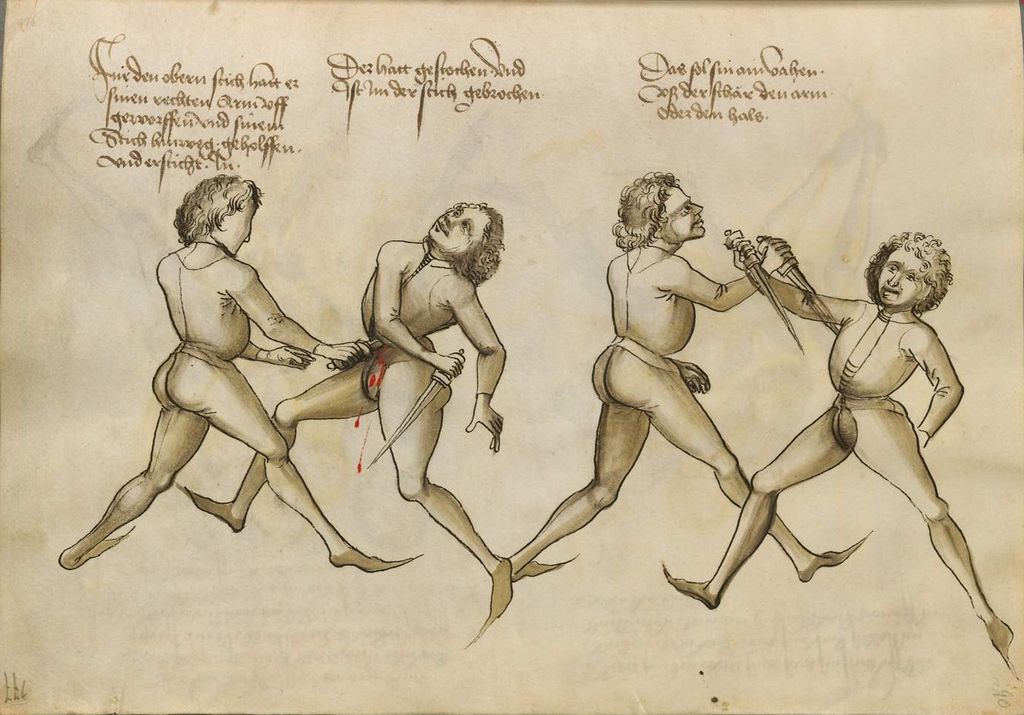 Für den obern stich hatt er
sinen rechten Arm uff
geworffen und sinem
Stich hinweg geholffen.
und ersticht In.
Der hatt gestochen und
Ist Im der stich gebrochen.
Das sol sin ain vahen.
uß der schär den arm.
Oder den hals.